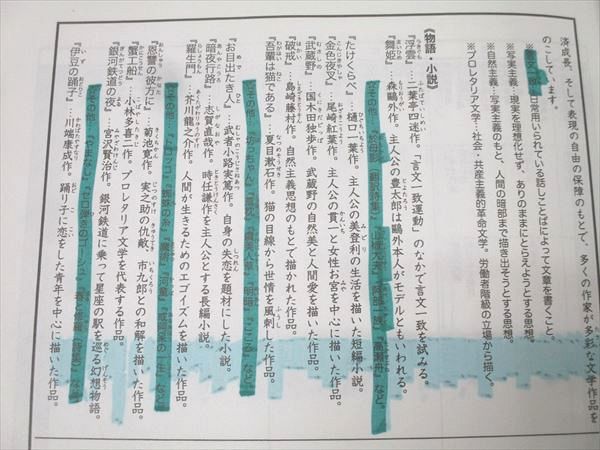 済成長、そして表現の自由の保障のもとで、多くの作家が多彩な文学作品を
のこしています。
※言文一致…日常用いられている話しことばによって文章を書くこと。
※写実主義…現実を理想化せず、ありのままにとらえようとする思想。
※自然主義…写実主義のもと、人間の暗部まで描き出そうとする思想。
※プロレタリア文学…社会・共産主義的革命文学。労働者階級の立場から描く。
《物語・小説》
『浮雲』…二葉亭四迷作。『言文一致運動』のなかで言文一致を試みる。
『舞姫』…森鷗外作。主人公の豊太郎は鷗外本人がモデルともいわれる。
その他…『於母影(翻訳詩集)』『山椒大夫』『阿部一族』『高瀬舟』など。
『たけくらべ』…樋口一葉作。主人公の美登利の生活を描いた短編小説。
『金色夜叉』…尾崎紅葉作。主人公の貫一と女性お宮を中心に描いた作品。
『武蔵野』…国木田独歩作。武蔵野の自然美と人間愛を描いた作品。
『破戒』…島崎藤村作。自然主義思想のもとで描かれた作品。
『吾輩は猫である』…夏目漱石作。猫の目線から世情を風刺した作品。
その他…『坊っちゃん』『草枕』『虞美人草』『明暗』『こころ』など。
『お目出たき人』…武者小路実篤作。自身の失恋を題材にした小説。
『暗夜行路』…志賀直哉作。時任謙作を主人公とする長編小説。
『羅生門』…芥川龍之介作。人間が生きるためのエゴイズムを描いた作品。
その他…『トロッコ』『蜘蛛の糸』『魔術』『河童』『或阿呆の一生』など。
『恩讐の彼方に』…菊池寛作。実之助の仇敵、市九郎との和解を描いた作品。
『蟹工船』…小林多喜二作。プロレタリア文学を代表する作品。
『銀河鉄道の夜』…宮沢賢治作。銀河鉄道に乗って星座の駅を巡る幻想物語。
その他…『やまなし』『セロ弾きのゴーシュ』『春と修羅(詩集)』など。
『伊豆の踊子』…川端康成作。踊り子に恋をした青年を中心に描いた作品。